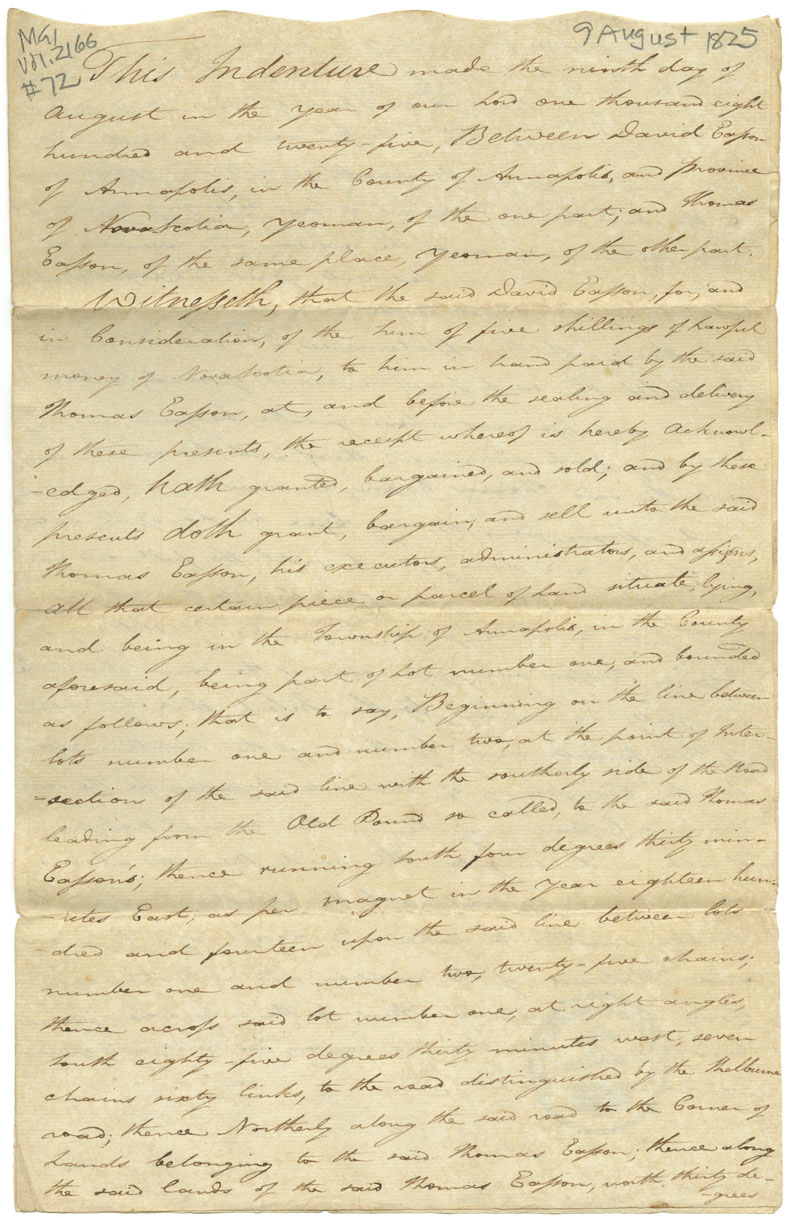 MG1
Vol. 2166
#72
9 August 1825
This Indenture made the ninth day of
August in the Year of our Lord one thousand eight
hundred and twenty-five, Between David Eaſson
of Annapolis, in the County of Annapolis, and Province
of NovaScotia, Yeoman, of the one part; and Thomas
Eaſson, of the same place, Yeoman, of the other part.
Witneſseth, that the said David Eaſson, for, and
in Consideration, of the sum of five shillings of Lawful
money of NovaScotia, to him in hand paid by the said
Thomas Eaſson, at, and before the sealing and delivery
of these presents, the receipt whereof is hereby Acknowl-
-edged, hath granted, bargained, and sold; and by these
presents doth grant, bargain, and sell unto the said
Thomas Eaſson, his executors, administrators, and aſsigns,
all that certain piece or parcel of Land situate, lying,
and being in the Township of Annapolis, in the County
aforesaid, being part of Lot number one, and bounded
as follows; that is to say, Beginning on the line between
Lots number one and number two, at the point of Inter-
-section of the said line with the southerly side of the Road
leading from the Old Pound so called, to the said Thomas
Eaſson's; thence running south four degrees thirty min-
-utes East, as per magnet in the Year eighteen hun-
-dred and fourteen upon the said line between lots
number one and number two, twenty-five chains;
thence acroſs said lot number one, at right angles,
South eighty-five degrees thirty minutes west, seven
chains sixty links, to the road distinguished by the Shelburne
road; thence Northerly along the said road to the Corner of
Lands belonging to the said Thomas Eaſson; thence along
the said Lands of the said Thomas Eaſson, north, thirty de-
-grees